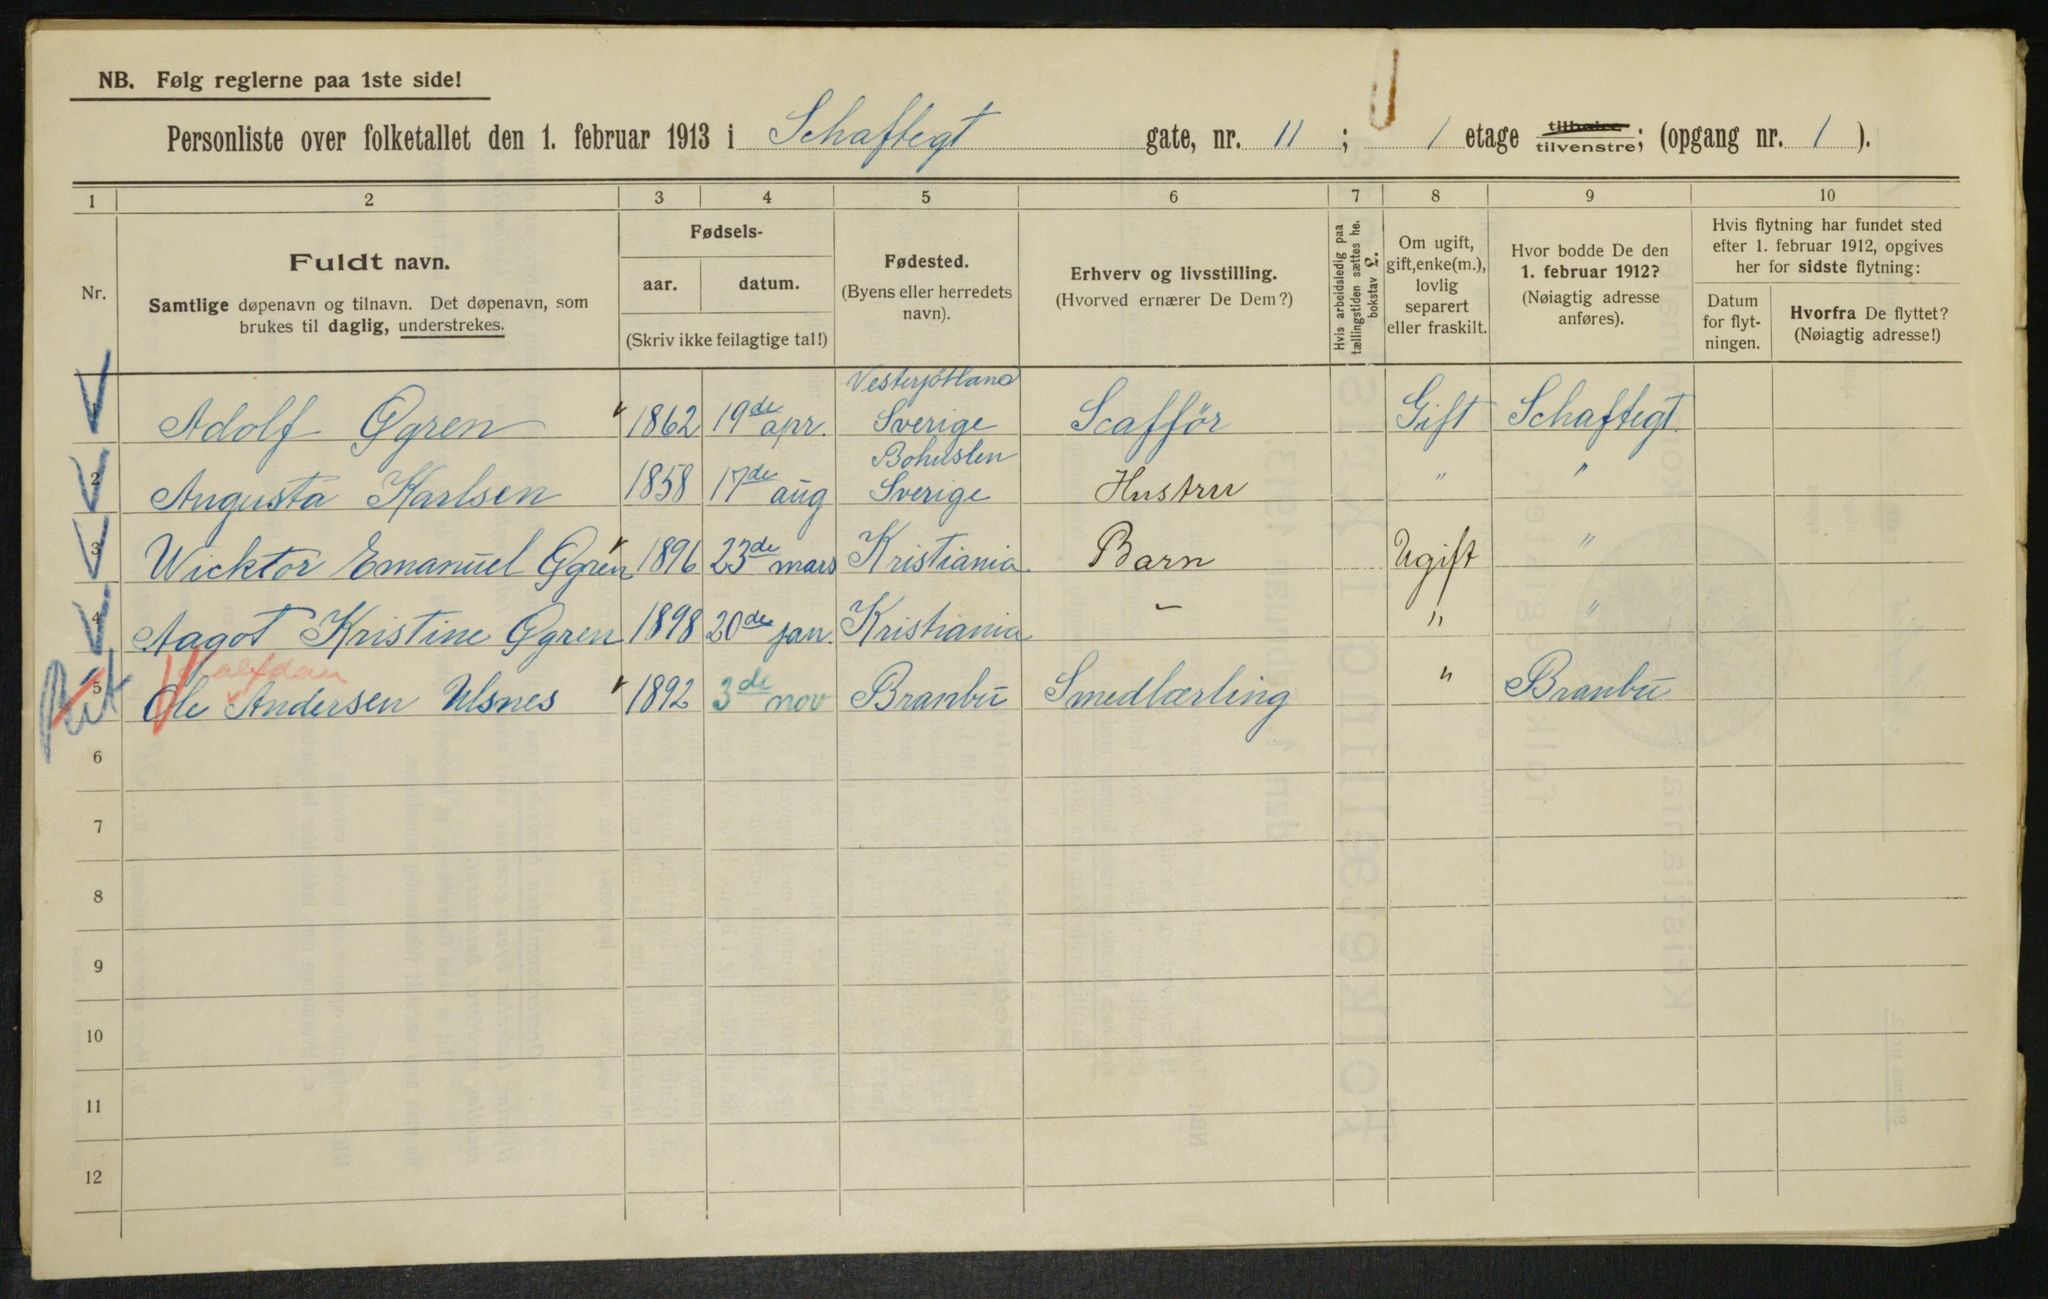 NB. Følg reglerne paa 1ste side!
Personliste over folketallet den 1. februar 1913 i Schaftegt gate, nr. 11 ; 1 etage tilhøire tilvenstre; (opgang nr. 1 ).
1 2 3 4 5 6 7 8 9 10
Nr.
Fuldt navn.
Samtlige døpenavn og tilnavn. Det døpenavn, som
brukes til daglig, understrekes.
Fødsels-
aar. datum.
(Skriv ikke feilagtige tal!)
Fødested.
(Byens eller herredets
navn).
Erhverv og livsstilling.
(Hvorved ernærer De Dem?)
Hvis arbeidsledig paa
tællingstiden sættes he.
bokstav L.
Om ugift,
gift, enke(m.),
lovlig
separert
eller fraskilt.
Hvor bodde De den
1. februar 1912?
(Nøiagtig adresse
anføres).
Hvis flytning har fundet sted
efter 1. februar 1912, opgives
her for sidste flytning:
Datum
for flyt-
ningen.
Hvorfra De flyttet?
(Nøiagtig adresse!)
Vesterjøtland
1 Adolf Ogren 1862 19de apr. Sverige Scafför Gift Schaftegt.
Bohuslen
2 Augusta Karlsen 1858 17de aug Sverige Hustru " "
3 Wicktor Emanuel Ogren 1896 23de mars Kristiania Barn Ugift "
4 Aagot Kristine Ogren 1898 20de jan. Kristiania - " "
Halfdan
5 Ole Andersen Ulsnes 1892 3de nov Branbu Smedlærling " Branbu
6
7
8
9
10
11
12